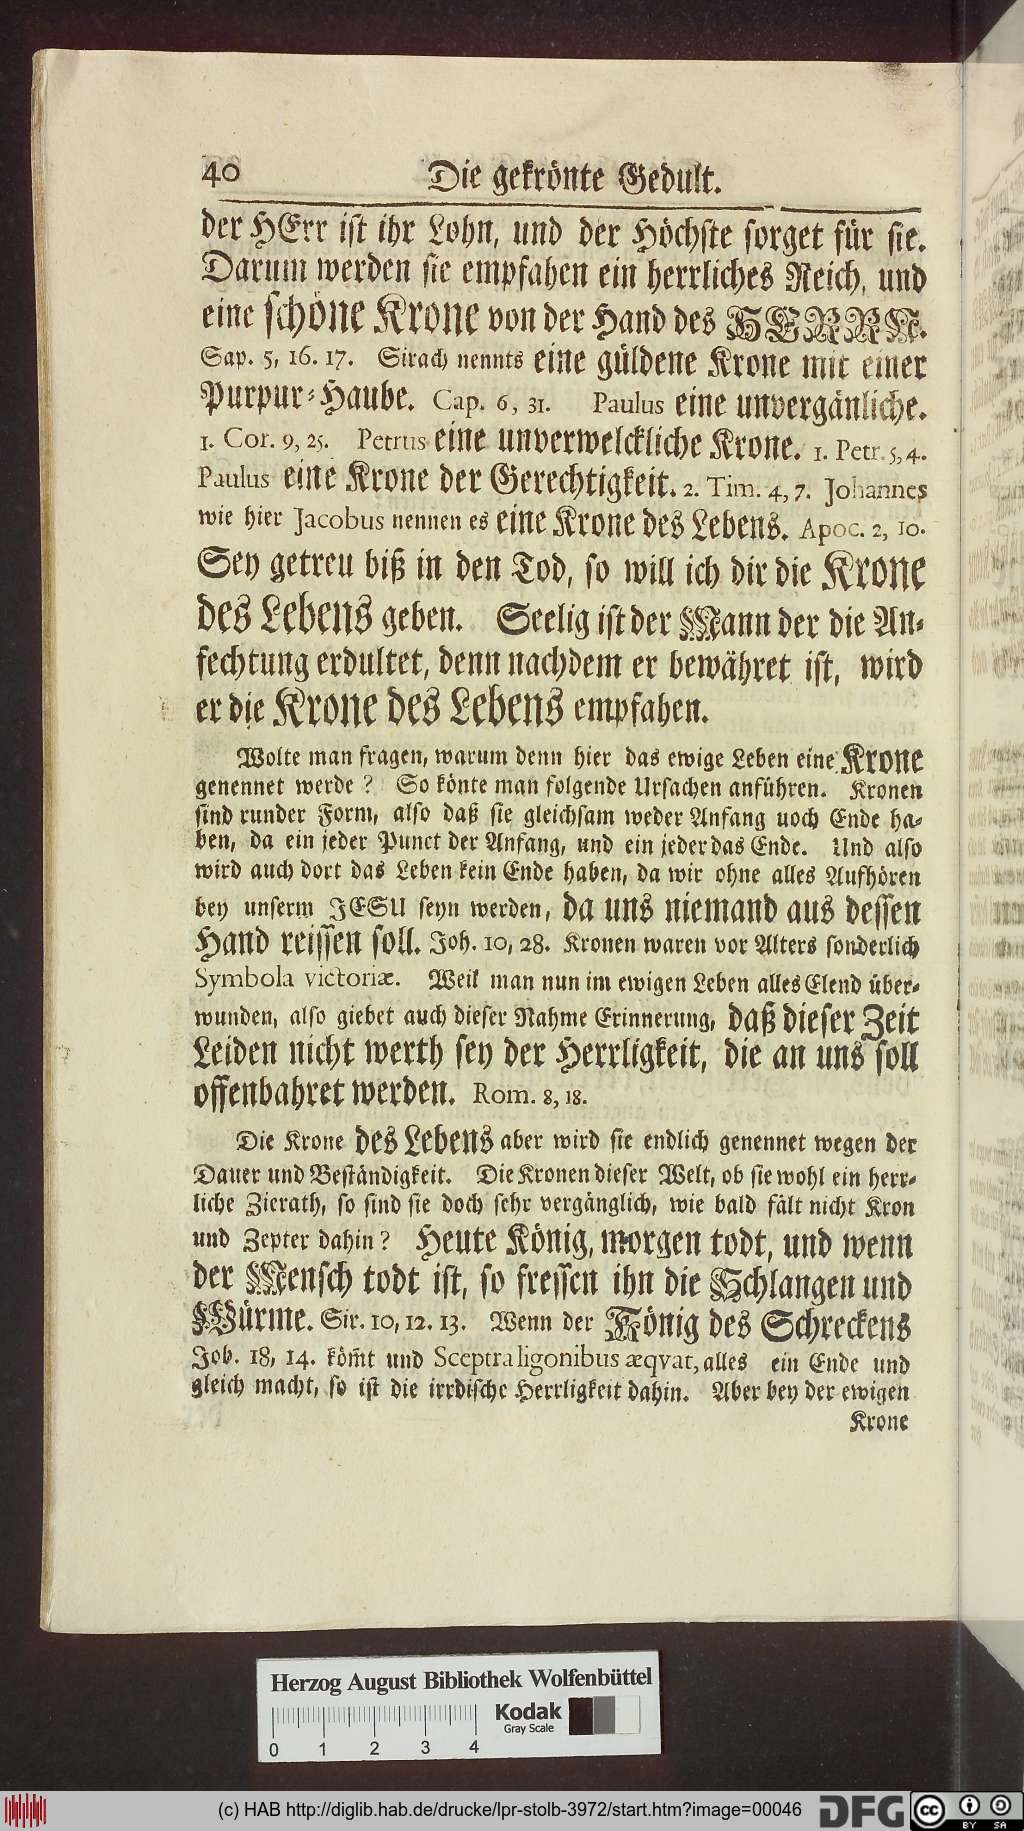 40 Die gekrönte Gedult.
der HErr ist ihr Lohn, und der Höchste sorget für sie.
Darum werden sie empfahen ein herrliches Reich, und
eine schöne Krone von der Hand des HERRN.
Sap. 5, 16. 17. Sirach nennts eine güldene Krone mit einer
Purpur-Haube. Cap. 6, 31. Paulus eine unvergänliche.
1. Cor. 9, 25. Petrus eine unverwelckliche Krone. 1. Petr. 5, 4.
Paulus eine Krone der Gerechtigkeit. 2. Tim. 4, 7. Johannes
wie hier Jacobus nennen es eine Krone des Lebens. Apoc. 2, 10.
Sey getreu biß in den Tod, so will ich dir die Krone
des Lebens geben. Seelig ist der Mann der die An-
fechtung erdultet, denn nachdem er bewähret ist, wird
er die Krone des Lebens empfahen.
Wolte man fragen, warum denn hier das ewige Leben eine Krone
genennet werde? So könte man folgende Ursachen anführen. Kronen
sind runder Form, also daß sie gleichsam weder Anfang uoch Ende ha-
ben, da ein jeder Punct der Anfang, und ein jeder das Ende. Und also
wird auch dort das Leben kein Ende haben, da wir ohne alles Aufhören
bey unserm JESU seyn werden, da uns niemand aus dessen
Hand reissen soll. Joh. 10, 28. Kronen waren vor Alters sonderlich
Symbola victoriæ. Weil man nun im ewigen Leben alles Elend über-
wunden, also giebet auch dieser Nahme Erinnerung, daß dieser Zeit
Leiden nicht werth sey der Herrligkeit, die an uns soll
offenbahret werden. Rom. 8, 18.
Die Krone des Lebens aber wird sie endlich genennet wegen der
Dauer und Beständigkeit. Die Kronen dieser Welt, ob sie wohl ein herr-
liche Zierath, so sind sie doch sehr vergänglich, wie bald fält nicht Kron
und Zepter dahin? Heute König, morgen todt, und wenn
der Mensch todt ist, so fressen ihn die Schlangen und
Würme. Sir. 10, 12. 13. Wenn der König des Schreckens
Job. 18, 14. köm̃t und Sceptra ligonibus æqvat, alles ein Ende und
gleich macht, so ist die irrdische Herrligkeit dahin. Aber bey der ewigen
Krone
Herzog August Bibliothek Wolfenbüttel
Kodak
Gray Scale
0 1 2 3 4
(c) HAB http://diglib.hab.de/drucke/lpr-stolb-3972/start.htm?image=00046 DFG cc BY SA